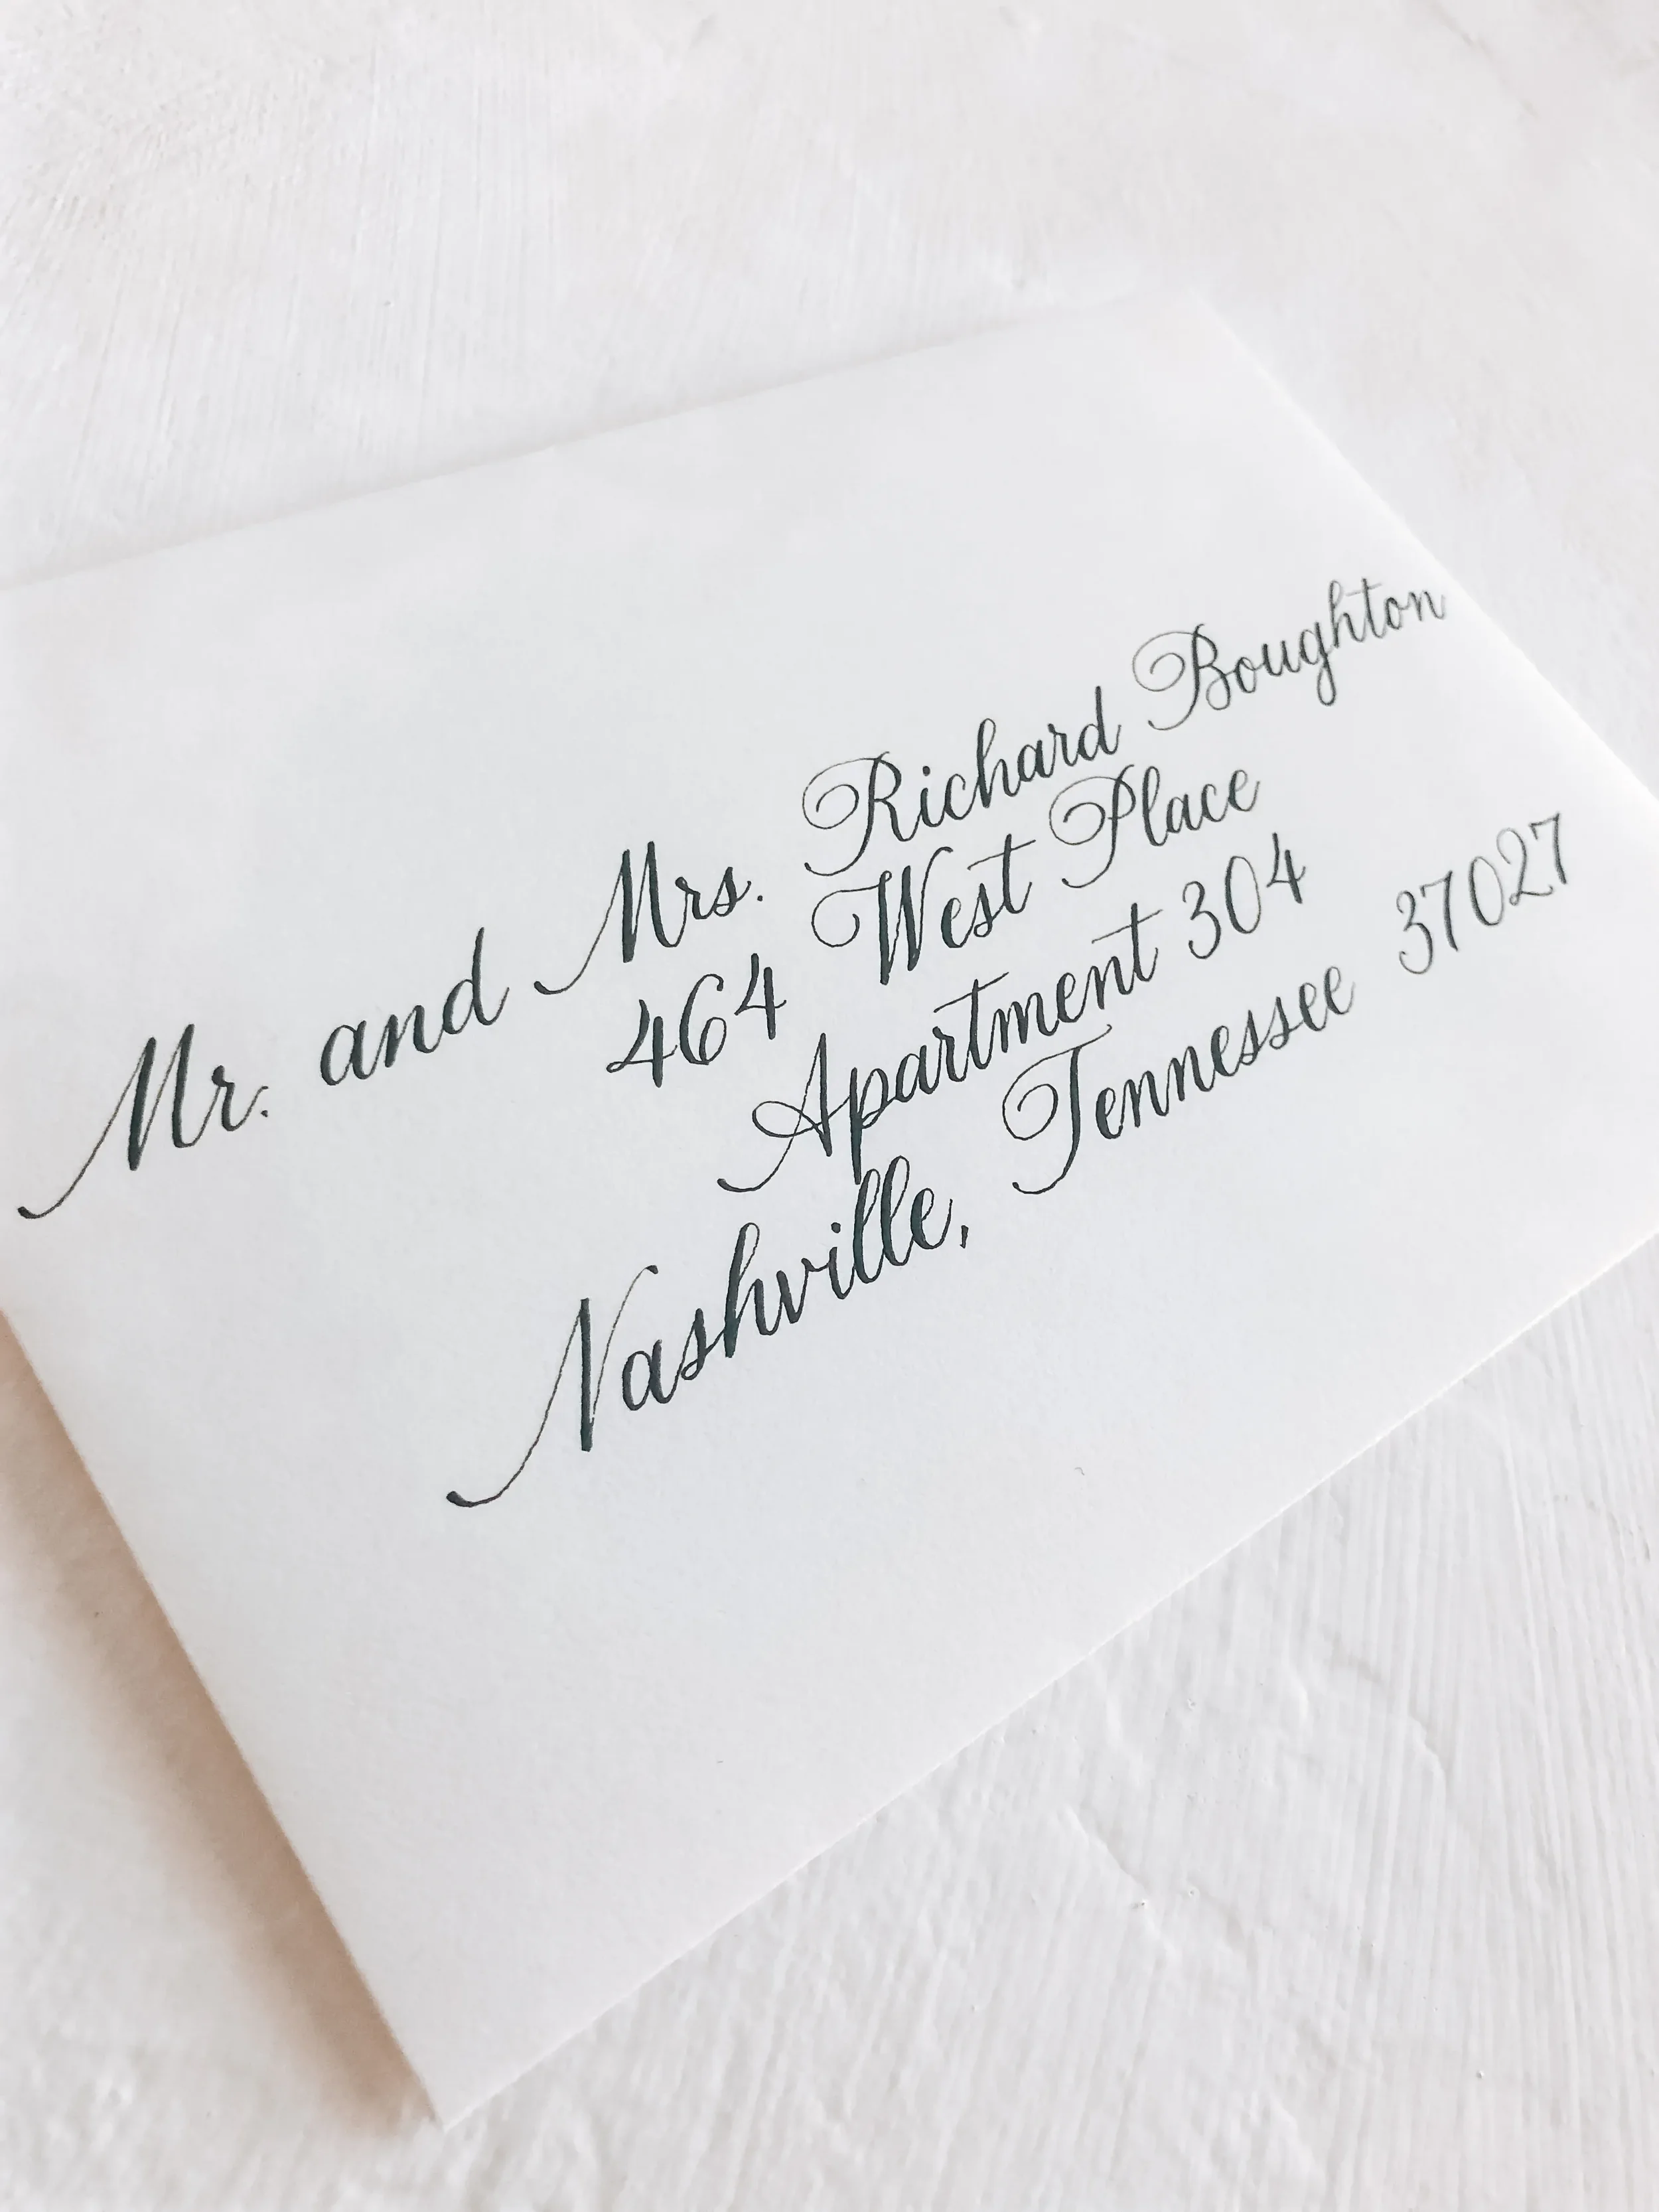 Mr. and Mrs. Richard Boughton
464 West Place
Apartment 304
Nashville, Tennessee 37027